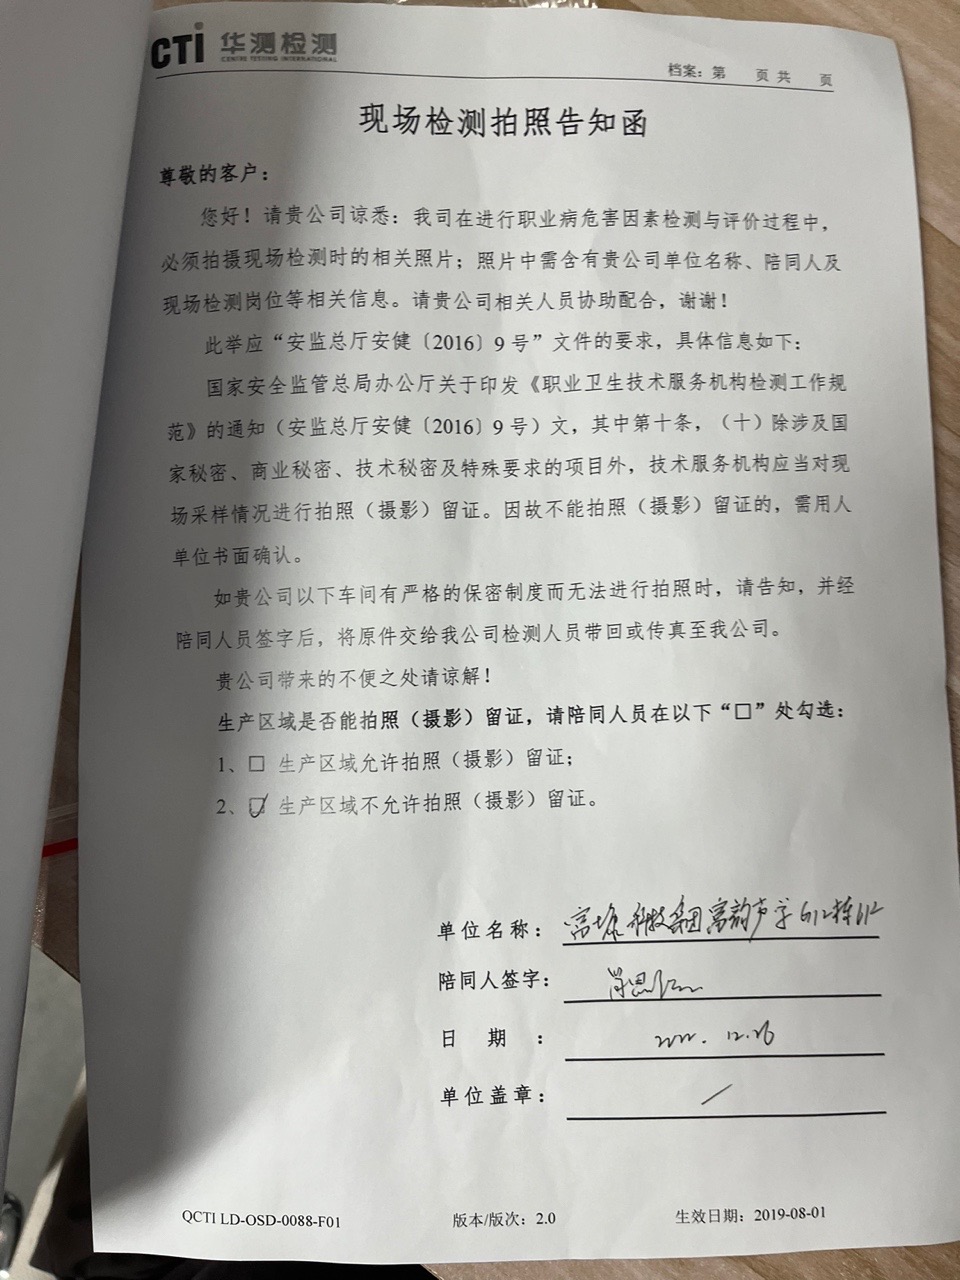 CTI 华测检测
CENTRE TESTING INTERNATIONAL
档案：第 页 共 页
现场检测拍照告知函
尊敬的客户：
您好！请贵公司谅悉：我司在进行职业病危害因素检测与评价过程中，
必须拍摄现场检测时的相关照片；照片中需含有贵公司单位名称、陪同人及
现场检测岗位等相关信息。请贵公司相关人员协助配合，谢谢！
此举应“安监总厅安健〔2016〕9 号”文件的要求，具体信息如下：
国家安全监管总局办公厅关于印发《职业卫生技术服务机构检测工作规
范》的通知（安监总厅安健〔2016〕9 号）文，其中第十条，（十）除涉及国
家秘密、商业秘密、技术秘密及特殊要求的项目外，技术服务机构应当对现
场采样情况进行拍照（摄影）留证。因故不能拍照（摄影）留证的，需用人
单位书面确认。
如贵公司以下车间有严格的保密制度而无法进行拍照时，请告知，并经
陪同人员签字后，将原件交给我公司检测人员带回或传真至我公司。
贵公司带来的不便之处请谅解！
生产区域是否能拍照（摄影）留证，请陪同人员在以下“□”处勾选：
1、□ 生产区域允许拍照（摄影）留证；
2、☑ 生产区域不允许拍照（摄影）留证。
单位名称： 科技集团富韵声学612栋612
陪同人签字：
日 期 ： 2022.12.26
单位盖章： /
QCTI LD-OSD-0088-F01 版本/版次：2.0 生效日期：2019-08-01